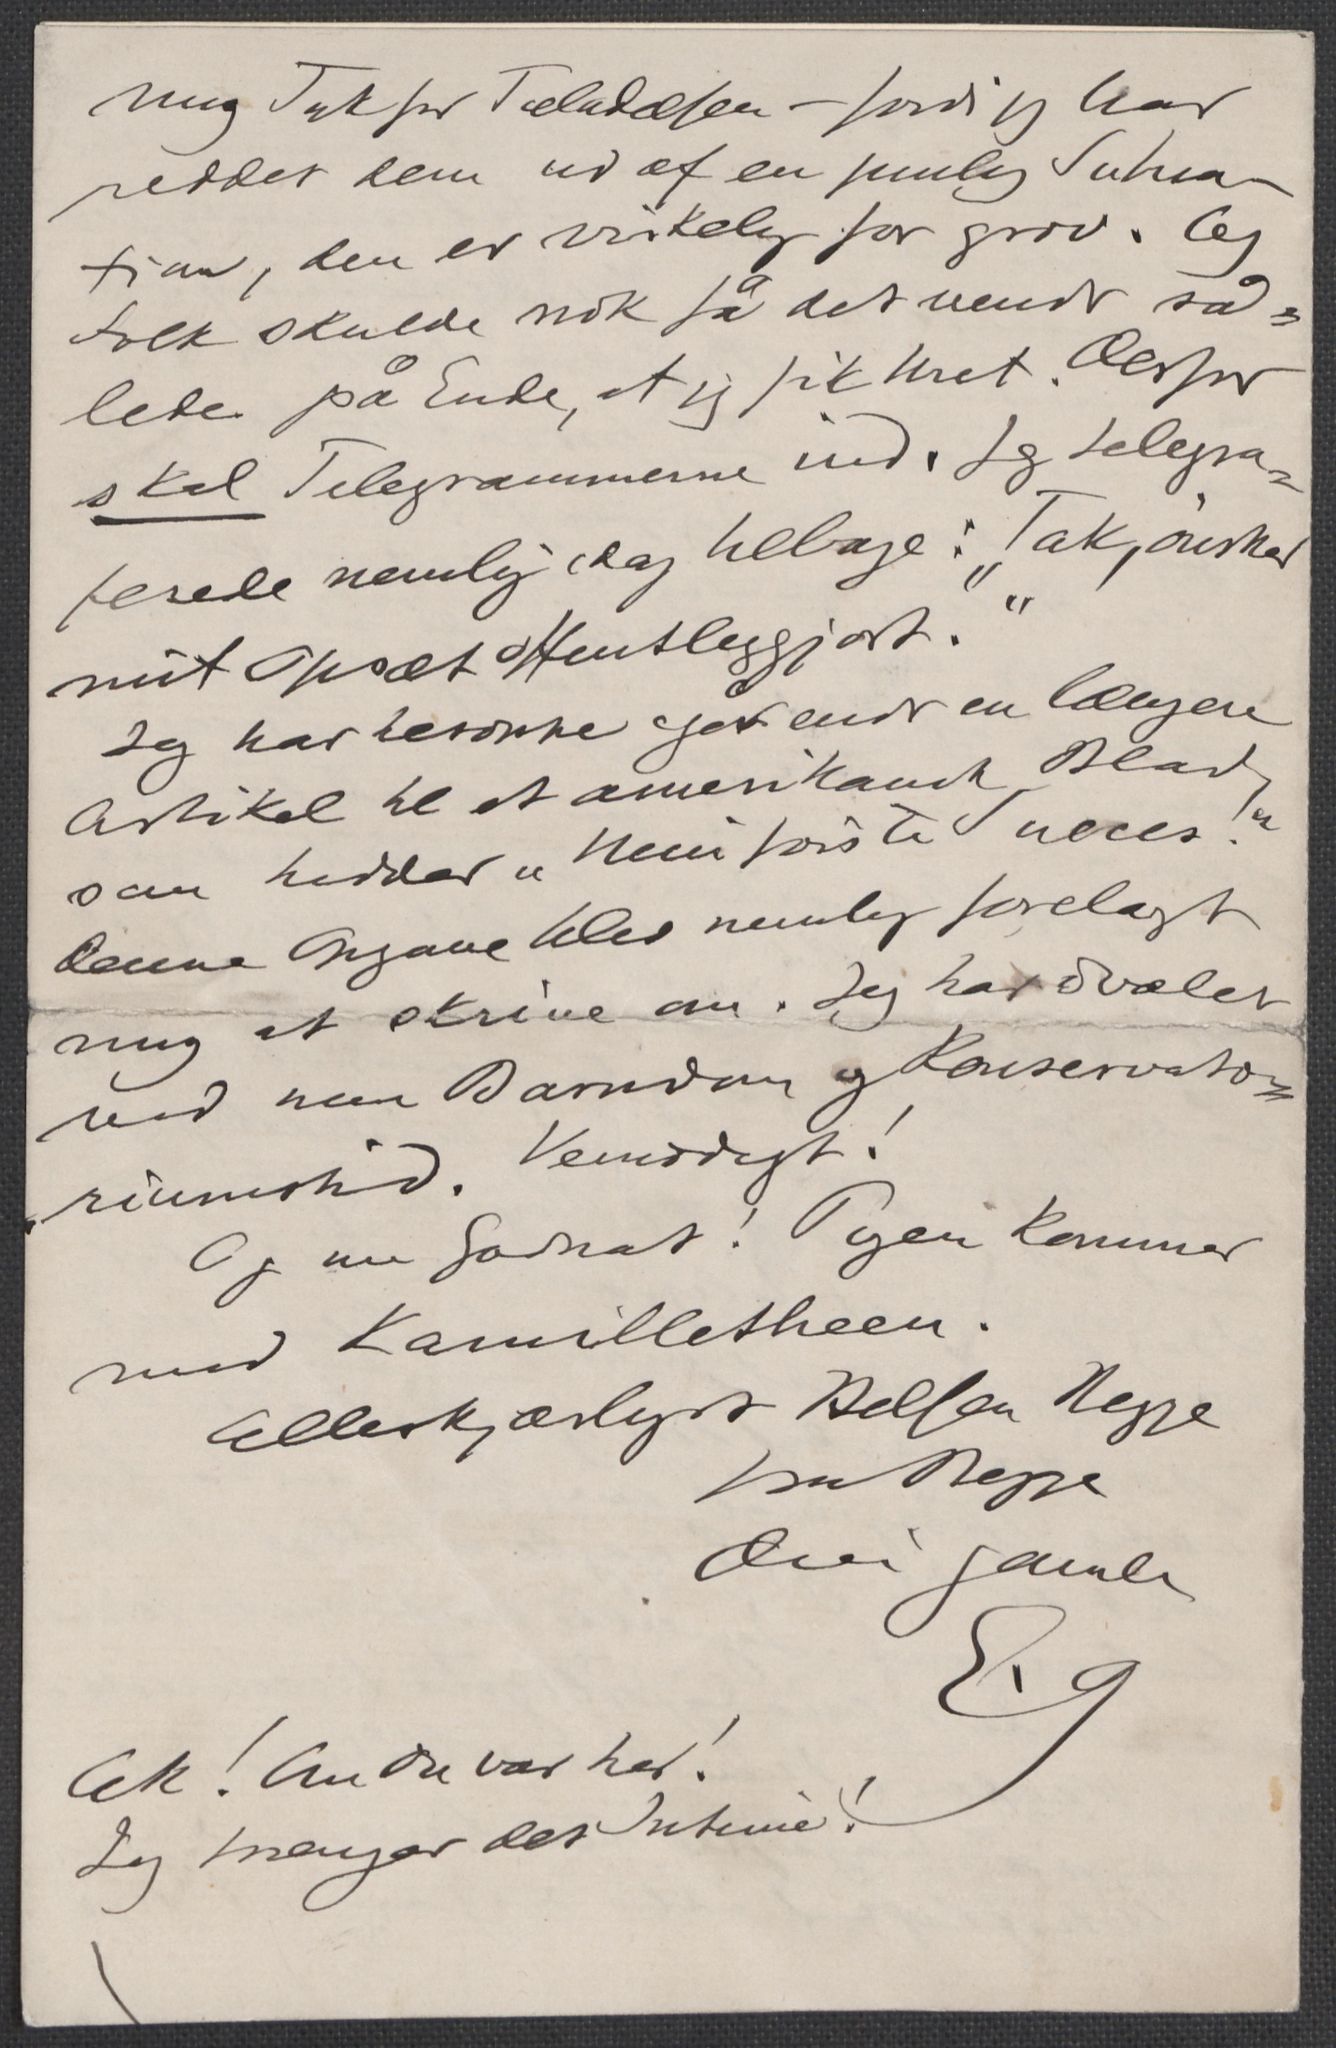 mig Tak for Tilladelsen – fordi jeg har
reddet dem ud af en pinlig Situa-
tion, den er virkelig for grov. Og
Folk skulde nok få det vendt så=
ledes på Ende, at jeg fik Uret. Derfor
skal Telegrammerne ind. Jeg telegra=
ferede nemlig idag tilbage: „Tak, önsker
mit Opsæt offentliggjort."
Jeg har heroppe gjort endt en længere
Artikel til et amerikansk Blad,
som hedder „Mein förste Succes!"
Denne Opgave blev nemlig forelagt
mig at skrive om. Jeg har dvælet
ved min Barndom og Konservato=
riumstid. Vemodigt!
Og nu Godnat! Pigen kommer
med Kamilletheen.
Allerkjærligst Hilsen Beppe
fra Beppe
Din gamle
E. G
Ak! Om du var her!
Jeg trænger det Intime!